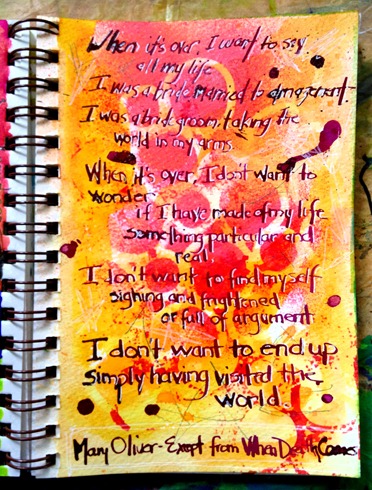 When it's over, I want to say
all my life
I was a bride married to amazement.
I was a bridegroom, taking the
world in my arms.
When it's over, I don't want to
wonder
if I have made of my life
something particular and
real.
I don't want to find myself
sighing and frightened
or full of argument
I don't want to end up
simply having visited the
world.
Mary Oliver - Exept from When Death Comes